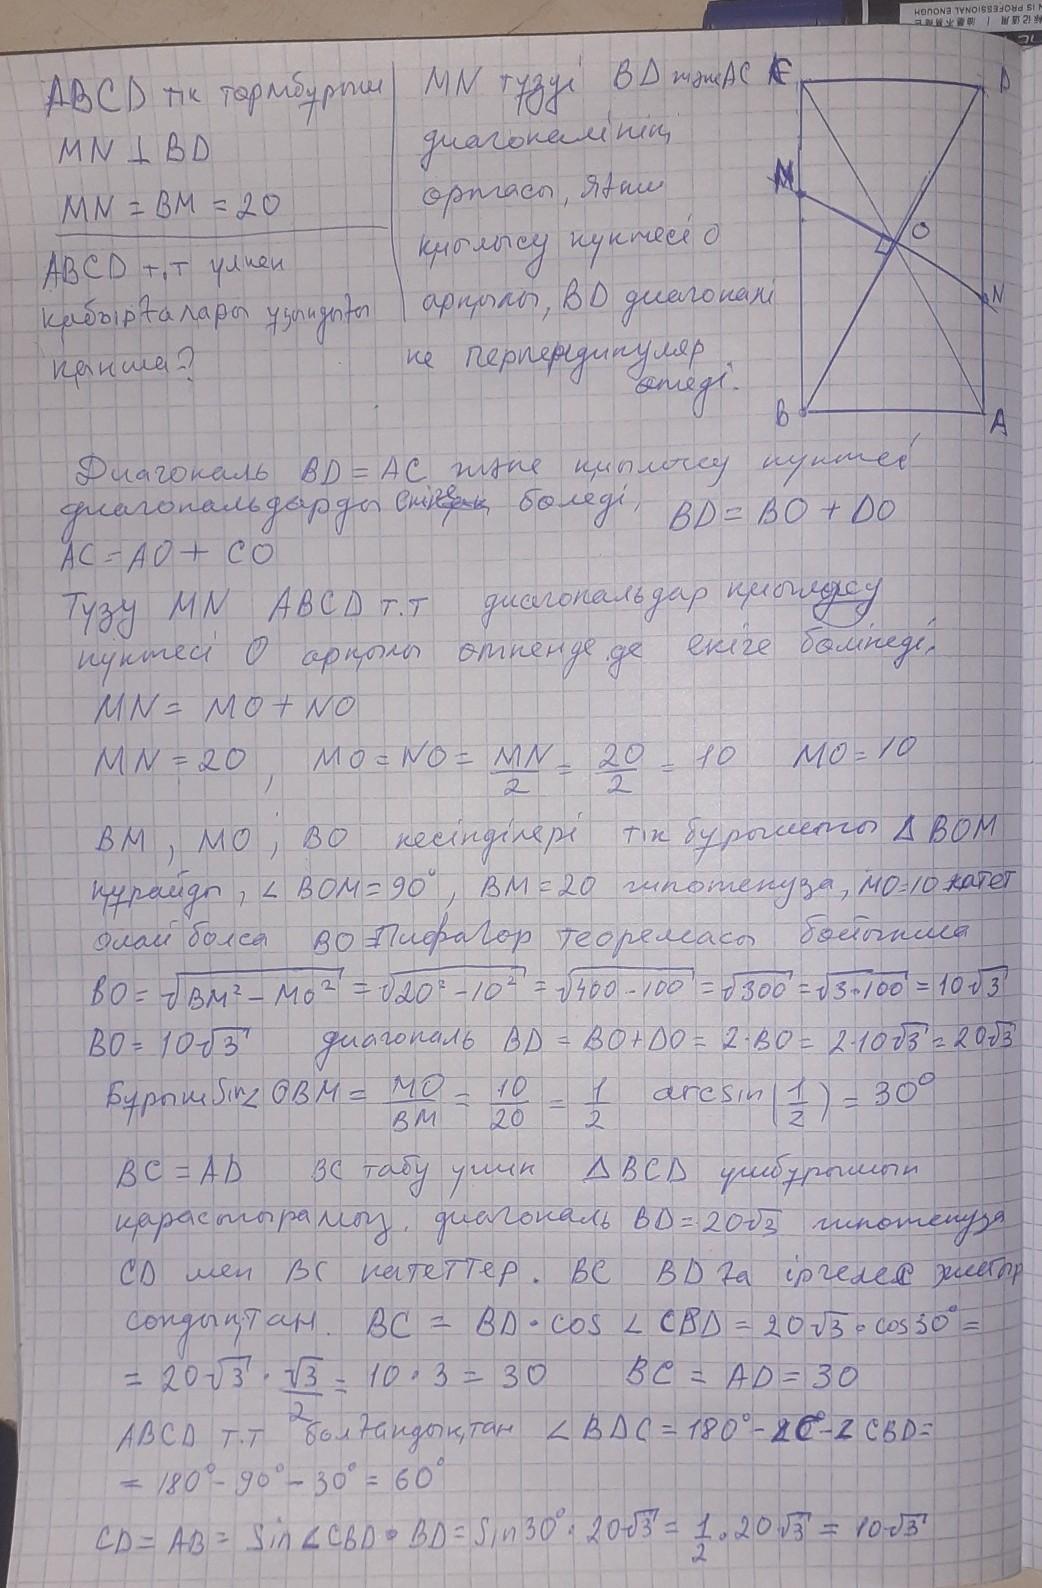 ABCD тік төртбұрыш
MN ⊥ BD
MN = BM = 20
ABCD т.т үлкен
қабырғалары ұзындығы
қанша?
MN түзуі BD және AC
диагоналінің
ортасы, яғни
қиылысу нүктесі O
арқылы, BD диагоналі
не перпендикуляр
өтеді.
D
M
O
N
B
A
Диагональ BD = AC және қиылысу нүктесі
диагональдарды бөледі, BD = BO + DO
AC = AO + CO
Түзу MN ABCD т.т диагональдар қиылысу
нүктесі O арқылы өткенде де екіге бөлінеді,
MN = MO + NO
MN = 20, MO = NO = MN/2 = 20/2 = 10 MO = 10
BM, MO, BO кесінділері тік бұрышты Δ BOM
құрайды, ∠ BOM = 90°, BM = 20 гипотенуза, MO = 10 катет
олай болса BO = Пифагор теоремасы бойынша
BO = √(BM² - MO²) = √(20² - 10²) = √(400 - 100) = √300 = √(3·100) = 10√3
BO = 10√3 диагональ BD = BO + DO = 2·BO = 2·10√3 = 20√3
Бұрыш Sin∠ OBM = MO/BM = 10/20 = 1/2 arcsin(1/2) = 30°
BC = AD BC табу үшін Δ BCD үшбұрышын
қарастырамыз, диагональ BD = 20√3 гипотенуза
CD мен BC катеттер. BC BD ға іргелес жатыр
сондықтан. BC = BD · cos ∠ CBD = 20√3 · cos 30° =
= 20√3 · √3/2 = 10 · 3 = 30 BC = AD = 30
ABCD т.т болғандықтан ∠ BDC = 180° - ∠C - ∠ CBD =
= 180° - 90° - 30° = 60°
CD = AB = Sin ∠ CBD · BD = Sin 30° · 20√3 = 1/2 · 20√3 = 10√3